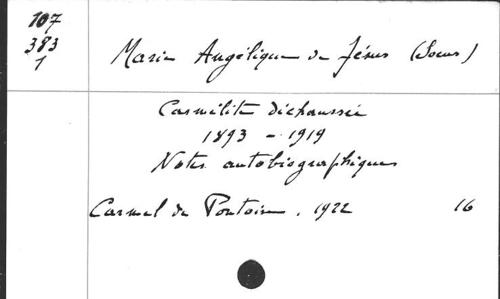 107
383
1
Marie Angélique de Jésus (Soeur)
Carmélite déchaussée
1893 - 1919
Notes autobiographiques
Carmel de Pontoise. 1922 16